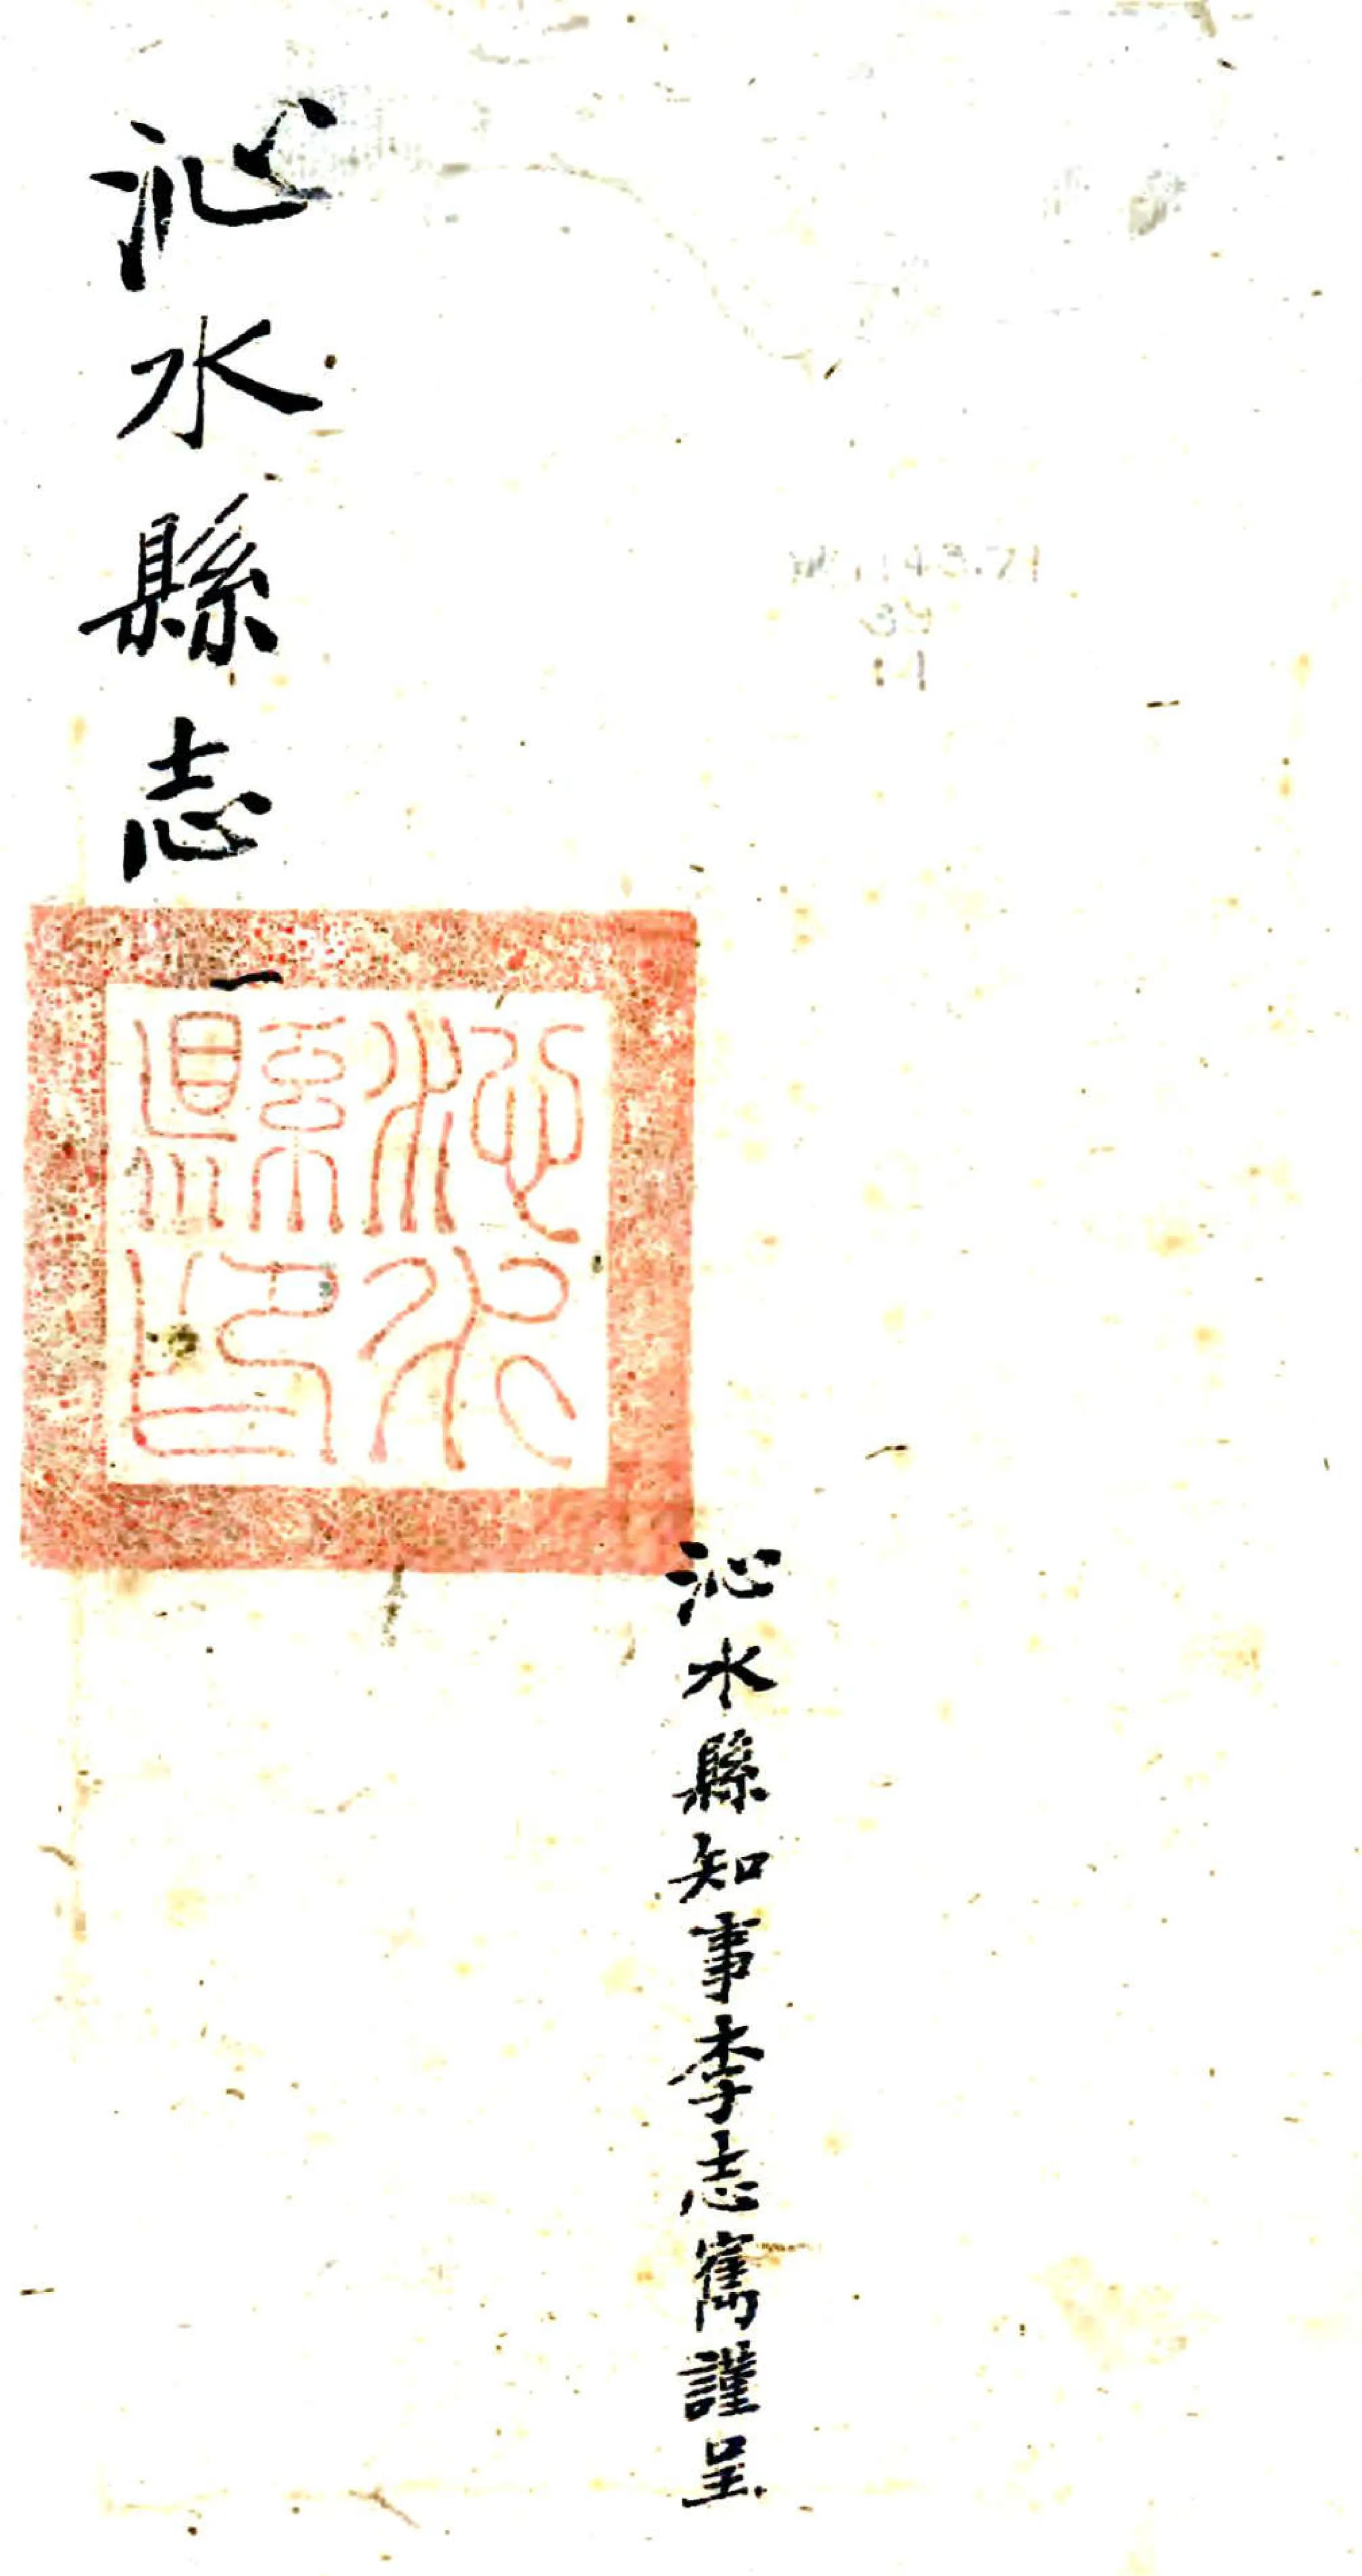 沁水縣志
一
沁水縣印
沁水縣知事李志寯謹呈